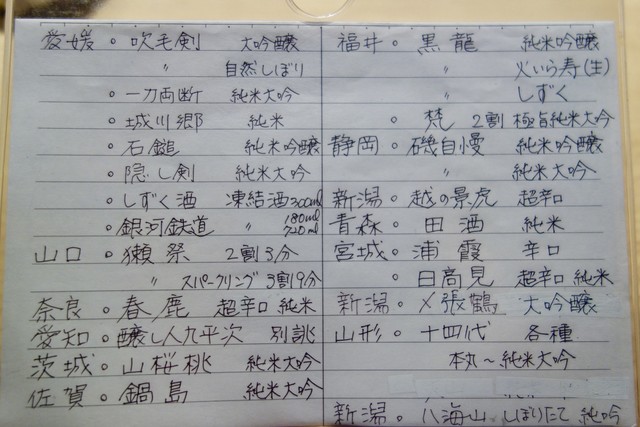 愛媛。吹毛剣 大吟醸
〃 自然しぼり
。一刀両断 純米大吟
。城川郷 純米
。石鎚 純米吟醸
。隠し剣 純米大吟
。しずく酒 凍結酒300ml
。銀河鉄道 〃 180ml 720ml
山口。獺祭 2割3分
〃 スパークリング 3割9分
奈良。春鹿 超辛口 純米
愛知。醸し人九平次 別誂
茨城。山桜桃 純米大吟
佐賀。鍋島 純米大吟
福井。黒龍 純米吟醸
〃 火いら寿(生)
〃 しずく
。梵 2割 極旨純米大吟
静岡。磯自慢 純米吟醸
〃 純米大吟
新潟。越の景虎 超辛口
青森。田酒 純米
宮城。浦霞 辛口
。日高見 超辛口 純米
新潟。〆張鶴 大吟醸
山形。十四代 各種
本丸〜純米大吟
新潟。八海山 しぼりたて 純吟